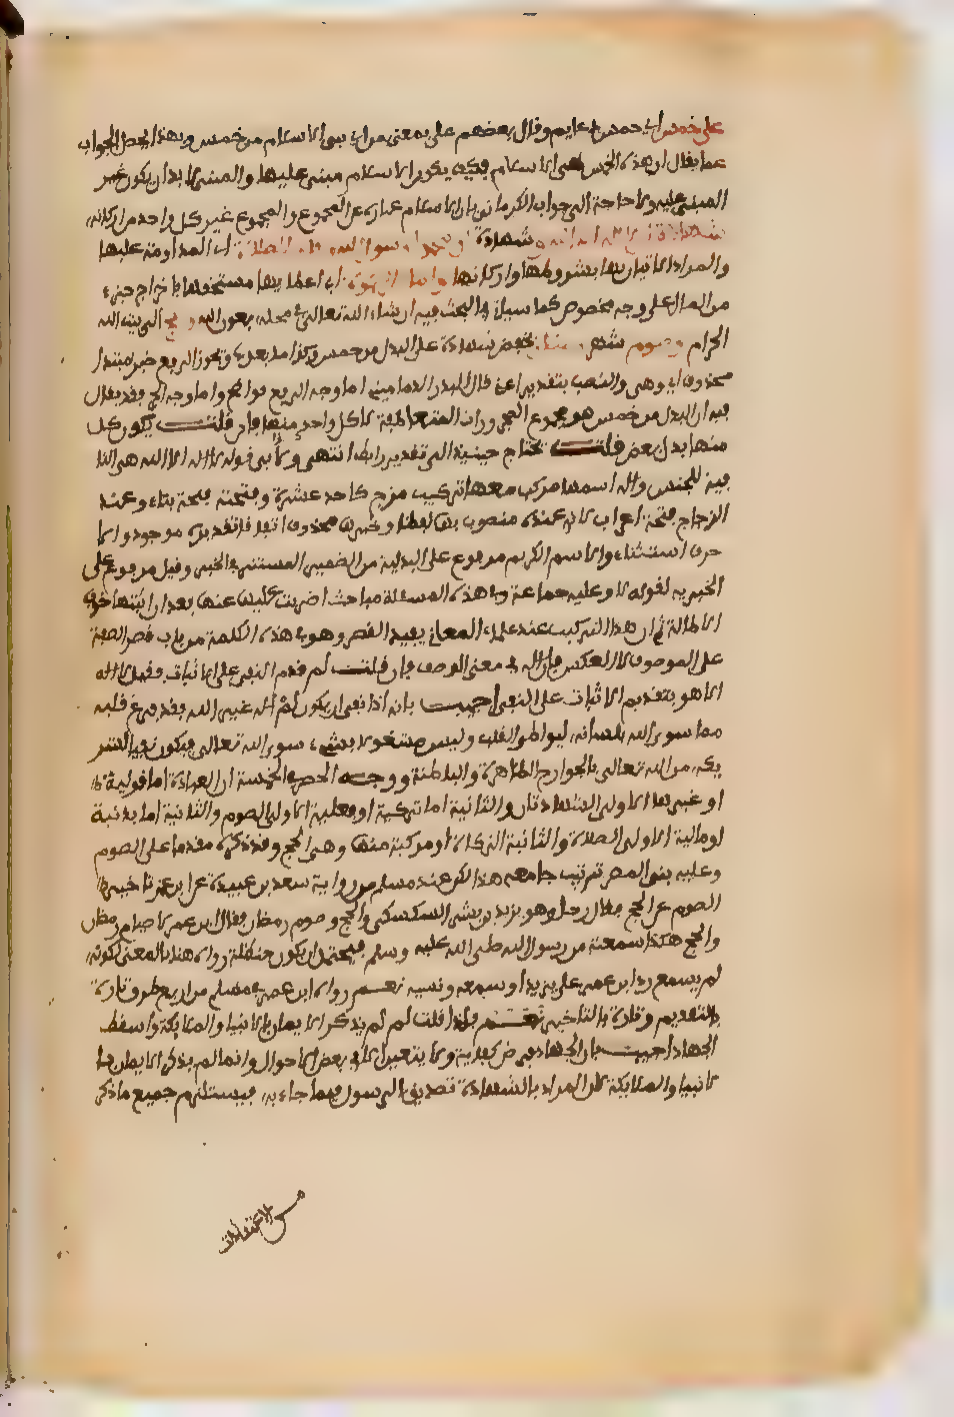 على خمس اي خمس دعايم وقال بعضهم على بمعنى من اي بني الاسلام من خمس وبهذا يحصل الجواب
عما يقال ان هذه الخمس هي الاسلام فكيف يكون الاسلام مبني عليها والمبني لا بد ان يكون غير
المبني عليه ولا حاجة الى جواب الكرماني بان الاسلام عبارة عن المجموع والمجموع غير كل واحد من اركانه
شهادة ان لا اله الا الله وشهادة ان محمدا رسول الله واقام الصلاة اي المداومة عليها
والمراد الاتيان بها بشروطها واركانها وايتاء الزكوة اي اعطايها مستحقها باخراج جزء
من المال على وجه مخصوص كما سياتي البحث فيه ان شاء الله تعالى في محله بعون الله وحج الى بيت الله
الحرام وصوم شهر رمضان بخفض شهادة على البدل من خمس وكذا ما بعدها ويجوز الرفع خبر مبتدا
محذوف اي وهي والنصب بتقدير اعني قال البدر الدماميني اما وجه الرفع فواضح واما وجه الجر فقد يقال
فيه ان البدل من خمس هو مجموع المجرورات المتعاطفة لا كل واحد منها فان قلت يكون كل
منها بدل بعض قلت تحتاج حينيذ الى تقدير رابط انتهى ولا في قوله لا اله الا الله هي النا
فية للجنس واله اسمها مركب معها تركيب مزج كاحد عشر وفتحته فتحة بناء وعند
الزجاج فتحة اعراب لانه عنده منصوب بها لفظا وخبرها محذوف اتفاقا تقديره موجود والا
حرف استثناء والاسم الكريم مرفوع على البدلية من الضمير المستتر في الخبر وقيل مرفوع على
الخبرية لقوله لا وعليه جماعة وفي هذه المسئلة مباحث اضربت عليها عنها بعد ان اثبتها خوف
الاطالة ثم ان هذا التركيب عند علماء المعاني يفيد القصر وهو في هذه الكلمة من باب قصر الصفة
على الموصوف لا العكس فان اله في معنى الوصف فان قلت لم قدم النفي على الاثبات فقيل لا اله
الا هو بتقديم الاثبات على النفي اجيب بانه اذا نفى ان يكون ثم اله غير الله فقد فرغ قلبه
مما سوى الله بلسانه ليواطي القلب وليس مشغولا بشيء سوى الله تعالى فيكون نفي الشر
يك من الله تعالى بالجوارح الظاهرة والباطنة ووجه الحصر في الخمسة ان العبادة اما قولية
او غيرها الاولى الشهادتان والثانية اما تركية او فعلية الاولى الصوم والثانية اما بدنية
او مالية الاولى الصلاة والثانية الزكاة او مركبة منها وهي الحج وقد ذكره مقدما على الصوم
وعليه بنى المصنف ترتيب جامعه هذا لكن عند مسلم من رواية سعد بن عبيدة عن ابن عمر تاخير
الصوم عن الحج فقال رجل وهو يزيد بن بشر السكسكي والحج وصوم رمضان فقال ابن عمر لا صيام رمضان
والحج هكذا سمعته من رسول الله صلى الله عليه وسلم فيحتمل ان يكون حنظلة رواه هنا بالمعنى لكونه
لم يسمع رد ابن عمر على يزيد او سمعه ونسيه نعم رواه ابن عمر في مسلم من اربع طرق تارة
بالتقديم وتارة بالتاخير نعم فاذا قلت لم لم يذكر الايمان بالانبيا والملايكة واسقط
الجهاد اجيب بان الجهاد فرض كفاية ولا يتعين الا في بعض الاحوال وانما لم يذكر الايمان با
لانبيا والملايكة لان المراد بالشهادة تصديق الرسول فيما جاء به فيستلزم جميع ما ذكر